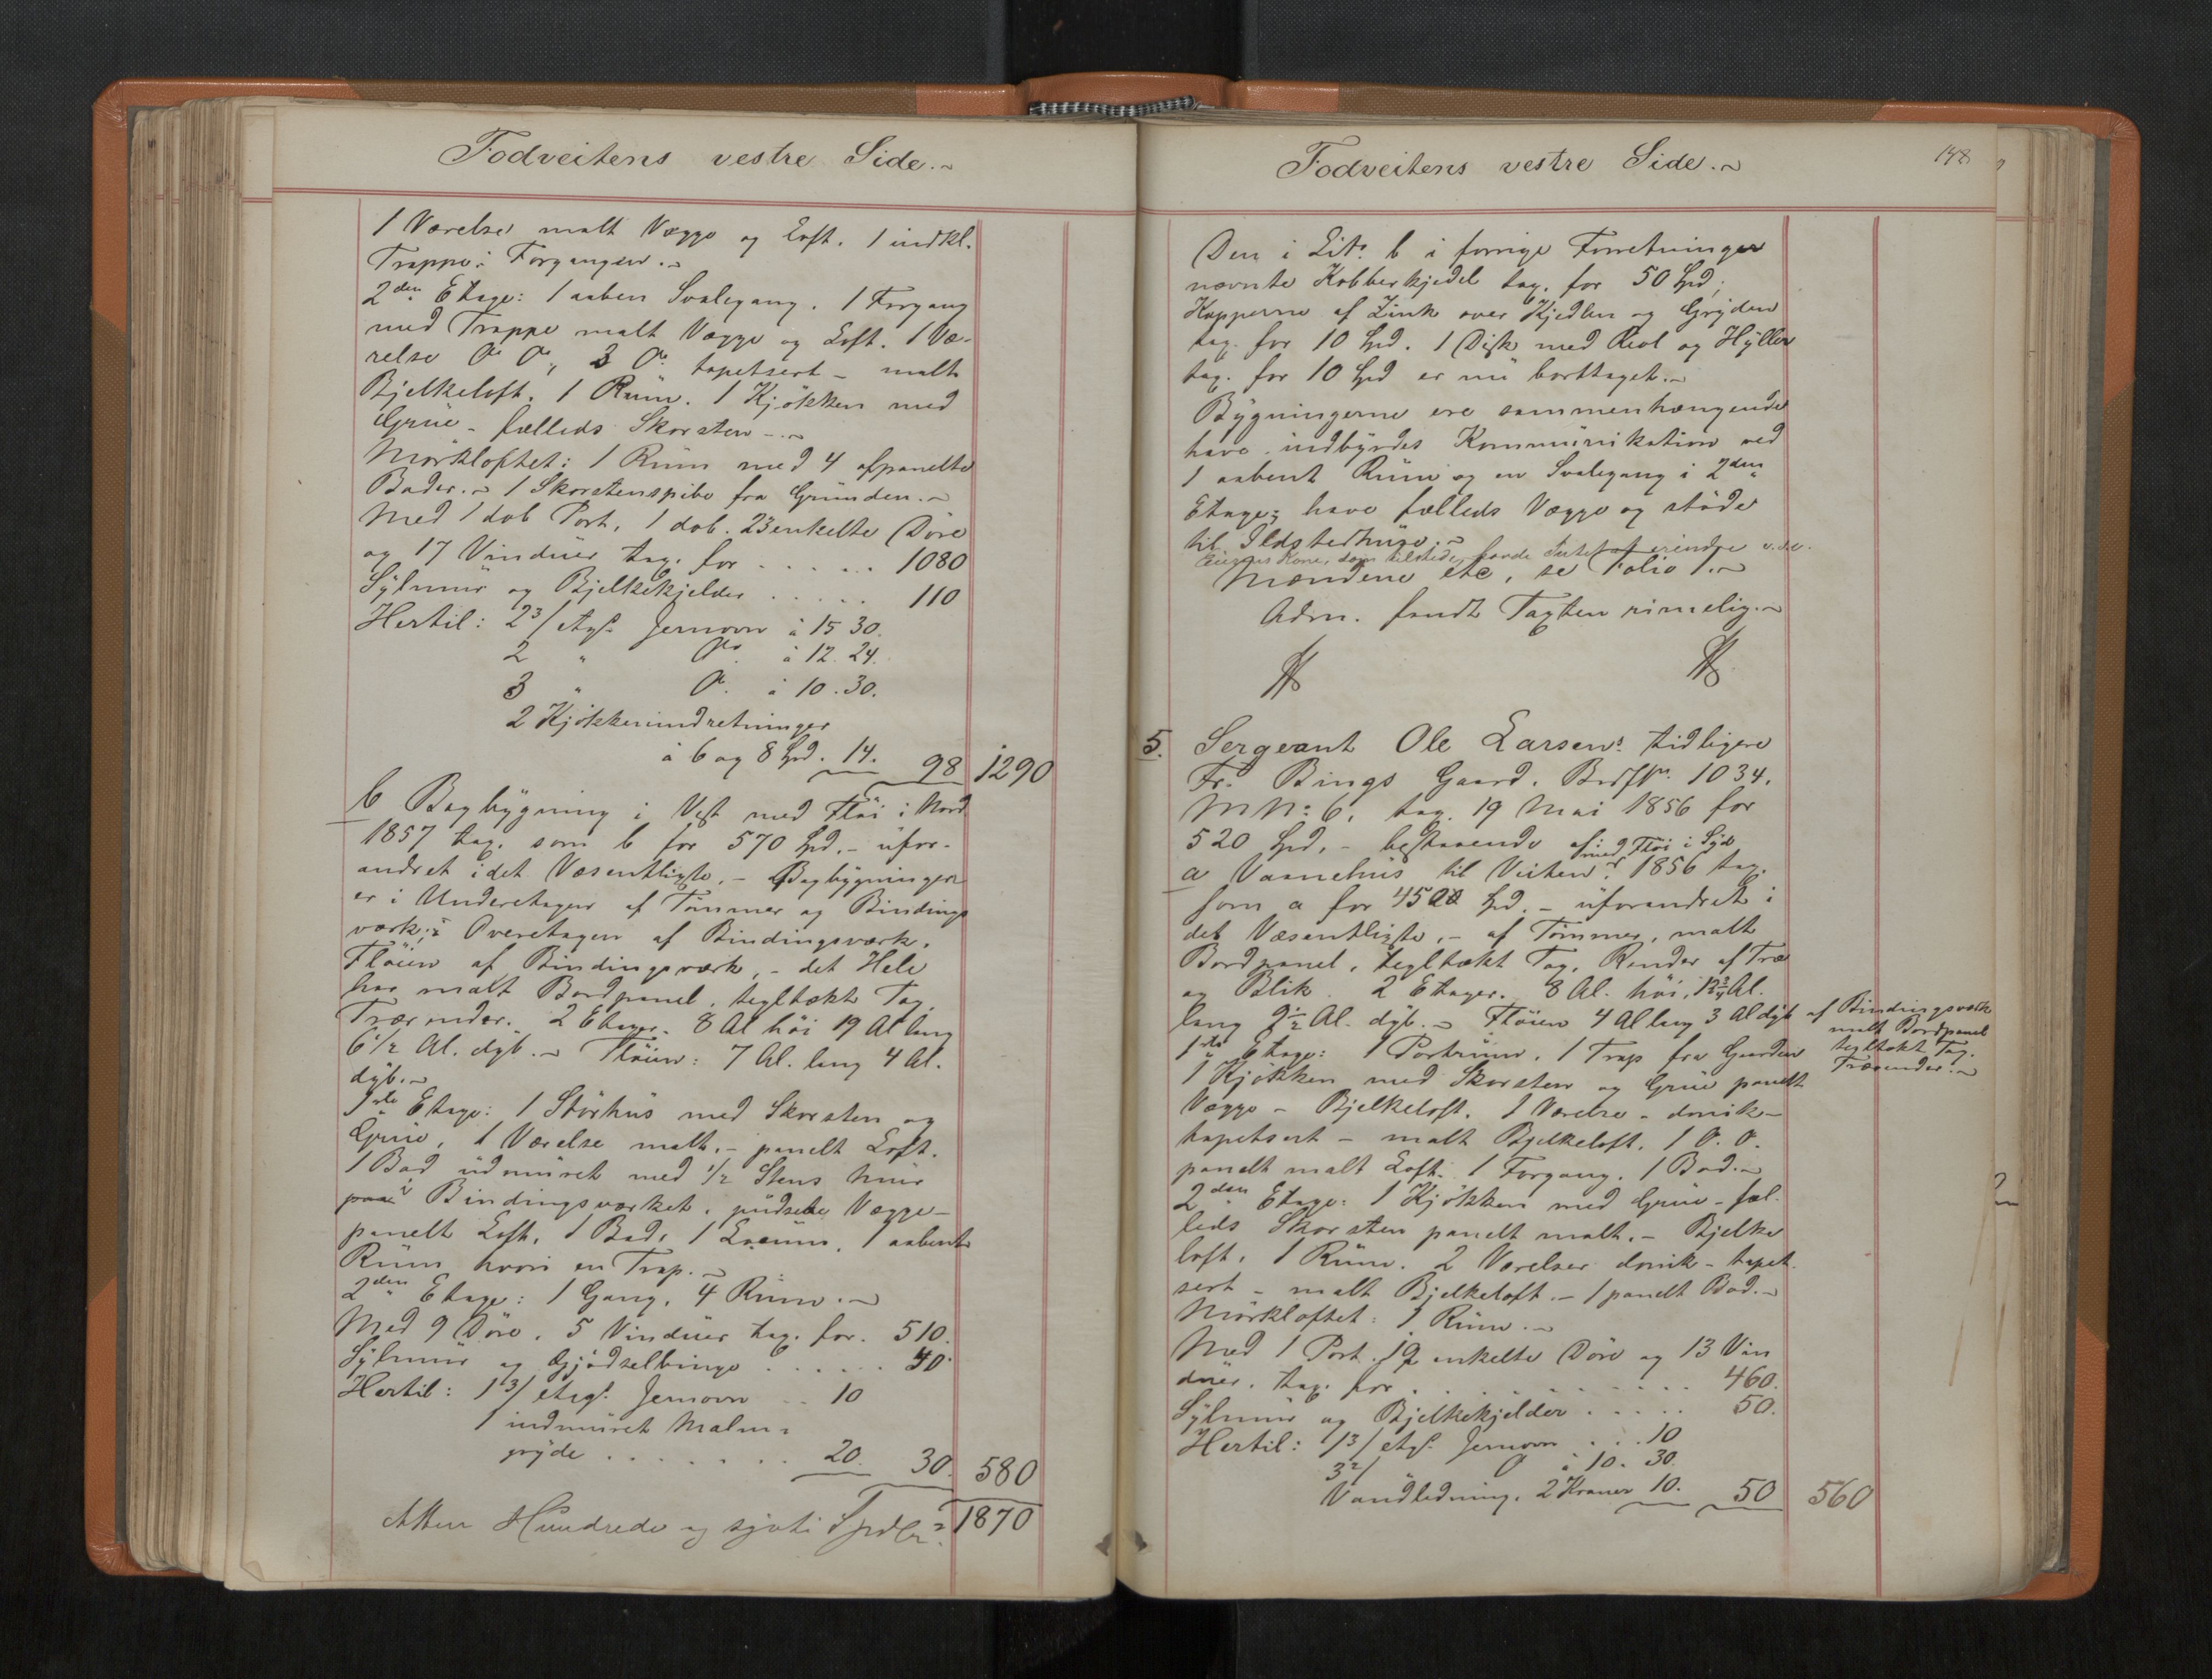 Fodveitens vestre Side.
1 Værelse malt Vægge og Loft. 1 indkl.
Trappe i Forgangen.
2den Etage: 1 aaben Svalegang. 1 Forgang
med Trappe malt Vægge og Loft. 1 Væ-
relse Do Do, 3 Do tapetsert - malt
Bjelkeloft. 1 Rum. 1 Kjøkken med
Grue - fælleds Skorsten -
Mørkloftet: 1 Rum med 4 afpanelte
Boder. 1 Skorstenspibe fra Grunden.
Med 1 dob Port, 1 dob. 23 enkelte Døre
og 17 Vinduer tax. for . . . . . 1080
Sylmur og Bjelkekjelder . . . . . 110
Hertil: 2 3/ etags. Jernovn à 15 30.
2 " Do. à 12. 24.
3 " Do. à 10. 30.
2 Kjøkkenindretninger
à 6 og 8 Spd. 14. 98 1290
b Bagbygning i Vest med Fløi i Nord
1857 tax. som b for 570 Spd. - ufor-
andret i det Væsentligste. - Bagbygningen
er i Underetagen af Tømmer og Bindings
værk; i Overetagen af Bindingsværk.
Fløien af Bindingsværk, - det Hele
har malt Bordpanel, tegltækt Tag,
Trærender. 2 Etager. 8 Al høi 19 Al lang
6 1/2 Al. dyb. - Fløien: 7 Al. lang 4 Al.
dyb.
1ste Etage: 1 Størhus med Skorsten og
Grue, 1 Værelse malt, - panelt Loft.
1 Bod udmuret med 1/2 Stens Mur
paa i Bindingsværket, pudsede Vægge -
panelt Loft, 1 Bod, 1 Locum, 1 aabent
Rum hvori en Trap.
2den Etage: 1 Gang, 4 Rum.
Med 9 Døre, 5 Vinduer tax. for. 510.
Sylmur og Gjødselbinge . . . . . . 40.
Hertil: 1 3/ etags. Jernovn . . 10
1 indmuret Malm-
gryde . . . . . . . 20. 30. 580
Atten Hundrede og sytti Spdlr. 1870
Fodveitens vestre Side.
148
Den i Lit. b i forrige Forretninger
nævnte Kobberkjedel tax. for 50 Spd,
Kapperne af Zink over Kjedlen og Gryden
tax. for 10 Spd. 1 Disk med Reol og Hylder
tax. for 10 Spd er nu borttaget.
Bygningerne ere sammenhængende
have indbyrdes Kommunikation ved
1 aabent Rum og en Svalegang i 2den
Etage; have fælleds Vægge og støde
til Ildstedhuse.
Eierens Kone, som tilstede, havde Intet at erindre v.s.v.
Mændene etc, se Folio 1.
Adm. fandt Taxten rimelig.
5. Sergeant Ole Larsens tidligere
Fr. Bings Gaard. Brdf No. 1034.
M No. 6, tax. 19 Mai 1856 for
520 Spd. - bestaaende af:
med Fløi i Syd
a Vaanehus til Veiten. 1856 tax.
som a for 450 Spd. - uforandret i
det Væsentligste, - af Tømmer, malt
Bordpanel, tegltækt Tag, Render af Træ
og Blik. 2 Etager. 8 Al. høi, 12 3/4 Al.
lang 9 1/2 Al. dyb. - Fløien 4 Al lang 3 Al dyb af Bindingsværk
malt Bordpanel
tegltækt Tag.
Trærender.
1ste Etage: 1 Portrum. 1 Trap fra Gaarden
1 Kjøkken med Skorsten og Grue panelt
Vægge - Bjelkeloft. 1 Værelse - donik-
tapetsert - malt Bjelkeloft. 1 Do. Do.
panelt malt Loft. 1 Forgang. 1 Bod.
2den Etage: 1 Kjøkken med Grue - fæl-
leds Skorsten panelt malt. - Bjelke
loft. 1 Rum. 2 Værelser donik - tapet-
sert - malt Bjelkeloft. - 1 panelt Bod.
Mørkloftet: 1 Rum.
Med 1 Port. 12 enkelte Døre og 13 Vin
duer. tax. for . . . . . . . . 460.
Sylmur og Bjelkekjelder . . . . . 50.
Hertil: 1 3/ etags. Jernovn . . . 10
3 2/ Do à 10. 30.
Vandledning. 2 Kraner 10. 50 560